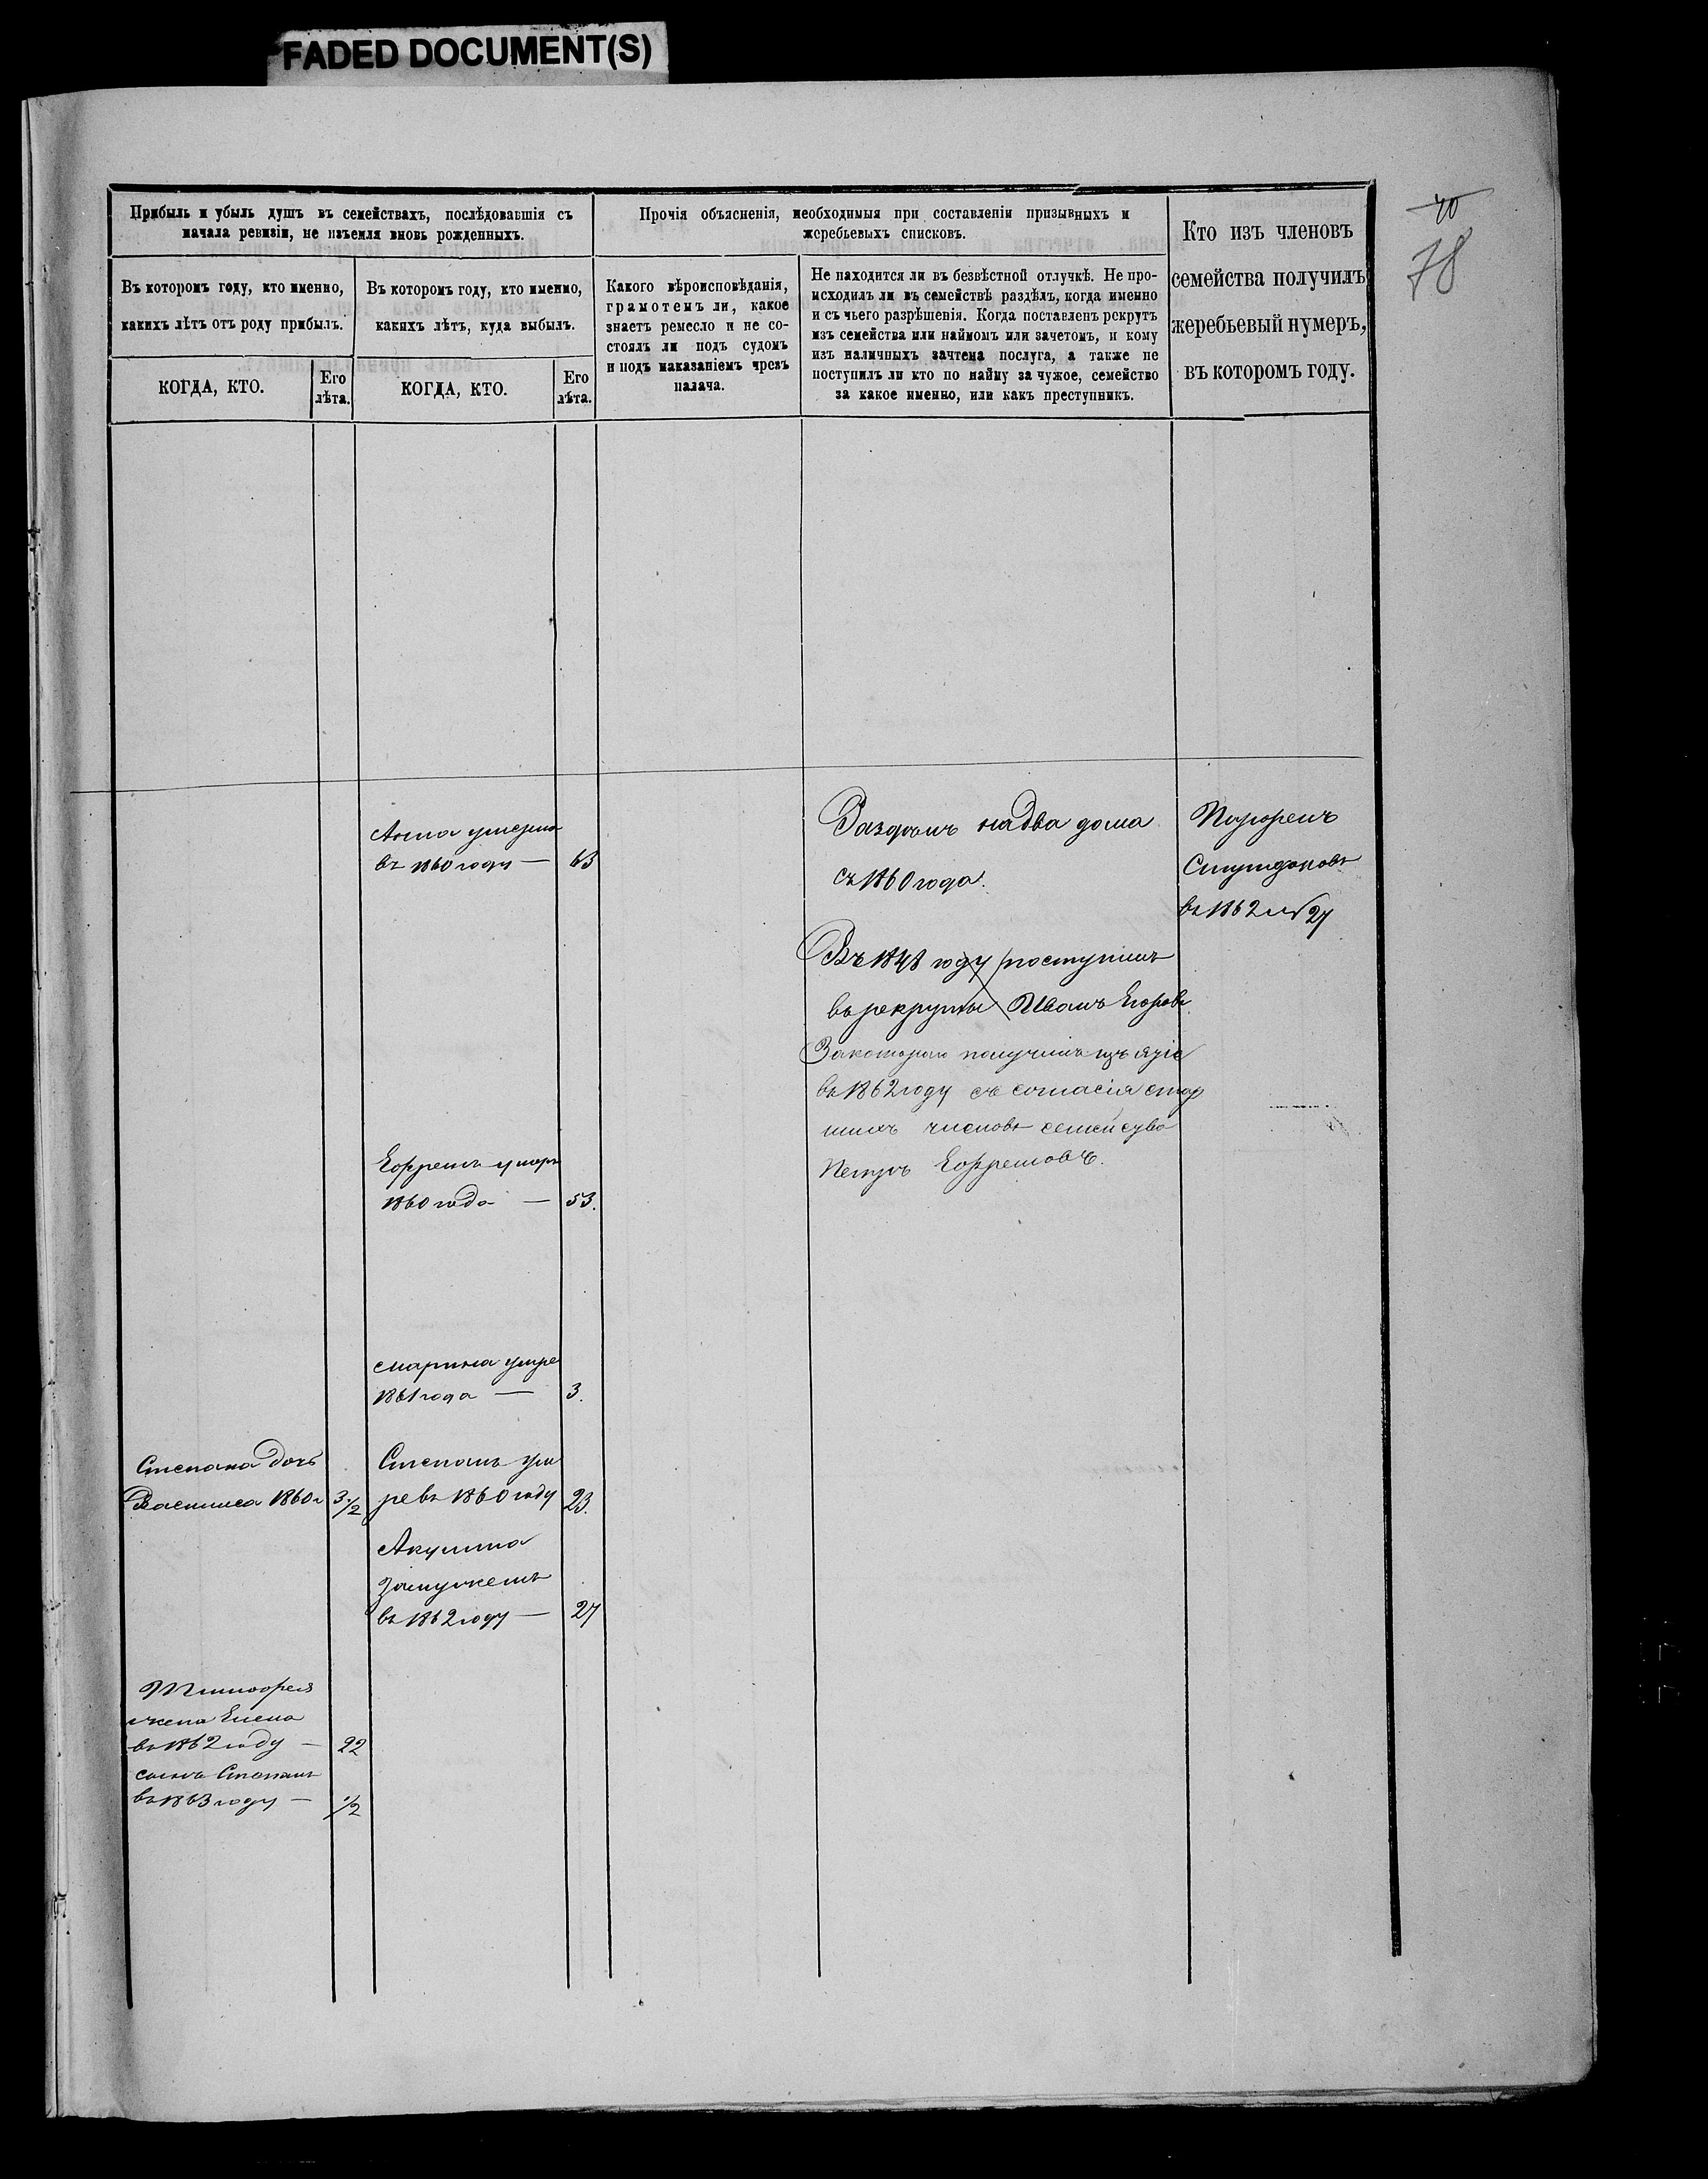 FADED DOCUMENT(S)
40
78
Прибыль и убыль душъ въ семействахъ, послѣдовавшія съ
начала ревизіи, не изъемля вновь рожденныхъ.
Въ которомъ году, кто именно,
какихъ лѣтъ отъ роду прибылъ.
КОГДА, КТО.
Его
лѣта.
Въ которомъ году, кто именно,
какихъ лѣтъ, куда выбылъ.
КОГДА, КТО.
Его
лѣта.
Прочія объясненія, необходимыя при составленіи призывныхъ и
жеребьевыхъ списковъ.
Какого вѣроисповѣданія,
грамотемъ ли, какое
знаетъ ремесло и не со-
стоялъ ли подъ судомъ
и подъ наказаніемъ чрезъ
палача.
Не находится ли въ безвѣстной отлучкѣ. Не про-
исходилъ ли въ семействѣ раздѣлъ, когда именно
и съ чьего разрѣшенія. Когда поставленъ рекрутъ
изъ семейства или наймомъ или зачетомъ, и кому
изъ наличныхъ зачтена послуга, а также не
поступилъ ли кто по найму за чужое, семейство
за какое именно, или какъ преступникъ.
Кто изъ членовъ
семейства получилъ
жеребьевый нумеръ,
въ которомъ году.
Анна умерла
въ 1860 году — 63
на два дома
съ 1860 года.
Парфенъ
въ 1862 № 27
Въ 1848 году поступилъ
въ рекруты Иванъ Егоровъ
За котораго получилъ
въ 1862 году съ согласія стар
шихъ членовъ семейства
Петръ Ефремовъ.
Ефремъ умеръ
1860 года — 53.
Марина умре
1861 года — 3.
Степана дочь
Василиса 1860 г 3 1/2
Степанъ ум
ревъ 1860 году 23.
Акулина
замужемъ
въ 1862 году — 27
Тимофея
жена Елена
въ 1862 году — 22
сынъ Степанъ
въ 1863 году — 1/2